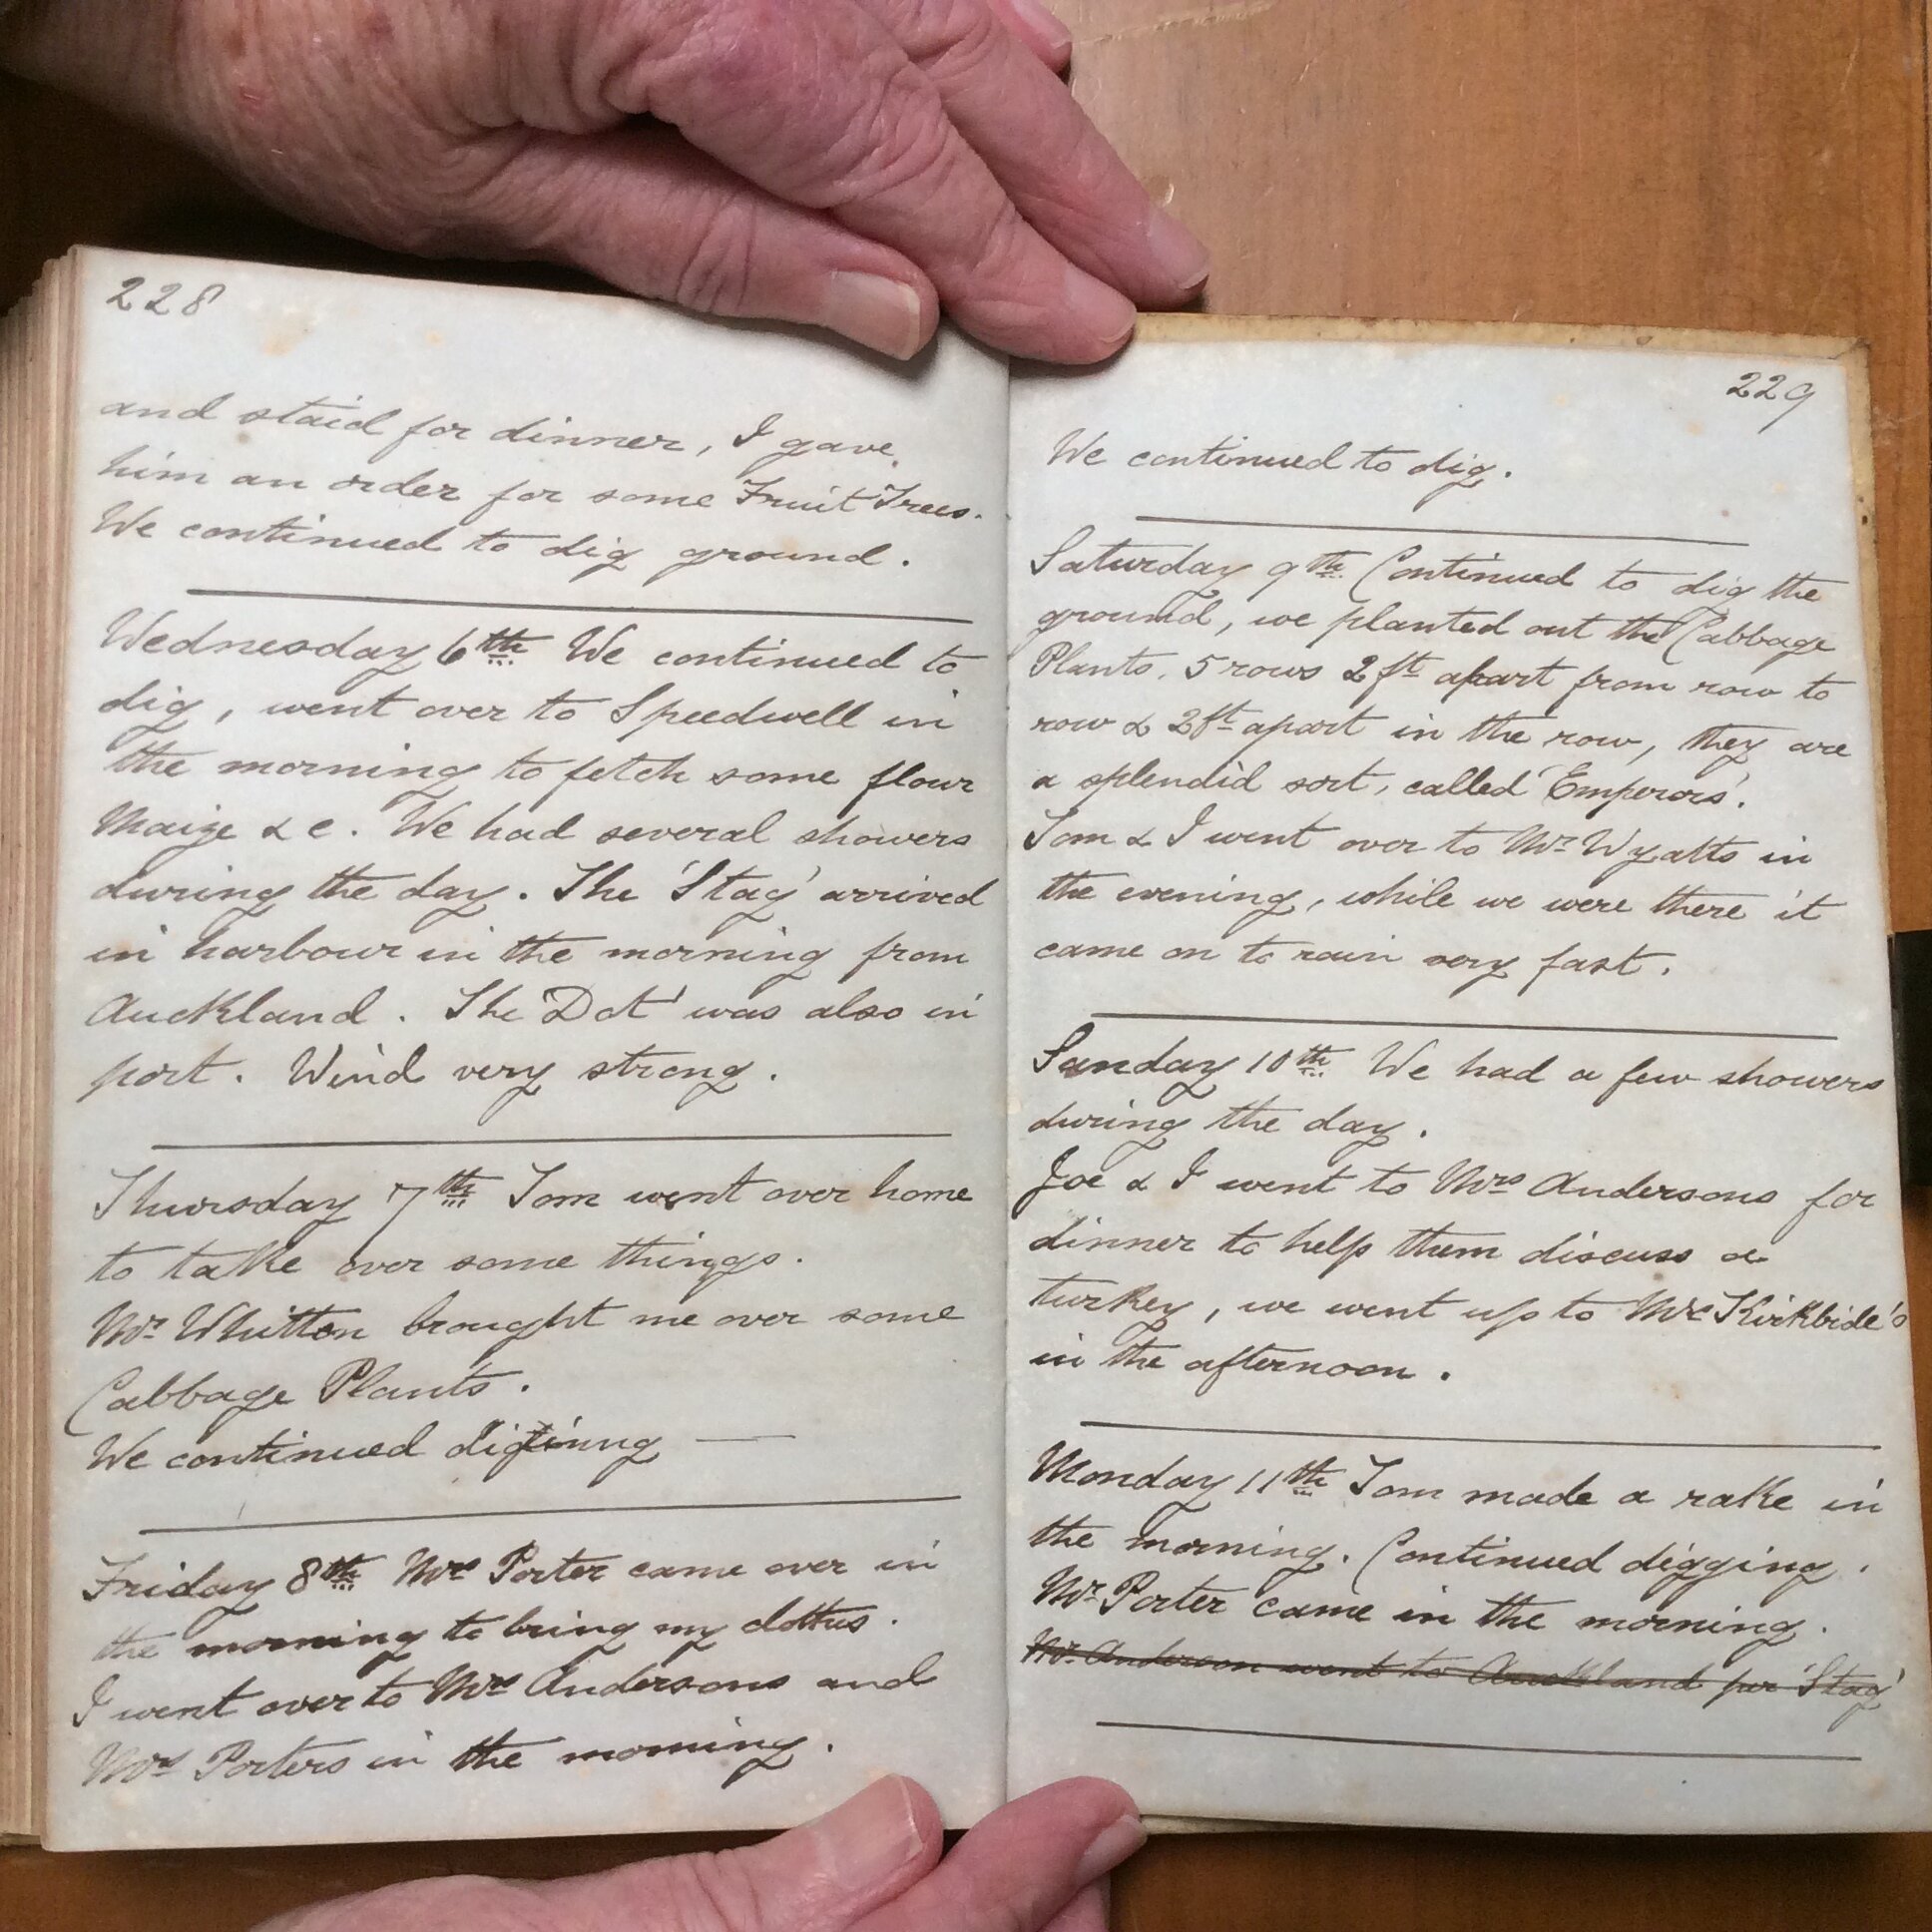 228
and staid for dinner, I gave
him an order for some Fruit Trees.
We continued to dig ground.
Wednesday 6th We continued to
dig, went over to Speedwell in
the morning to fetch some flour
Maize &c. We had several showers
during the day. The 'Stag' arrived
in harbour in the morning from
Auckland. The 'Dot' was also in
port. Wind very strong.
Thursday 7th Tom went over home
to take over some things.
Mr Whitten brought me over some
Cabbage Plants.
We continued digging —
Friday 8th Mrs Porter came over in
the morning to bring my clothes.
I went over to Mrs Andersons and
Mrs Porters in the morning.
229
We continued to dig.
Saturday 9th Continued to dig the
ground, we planted out the Cabbage
Plants, 5 rows 2 ft apart from row to
row & 2 ft apart in the row, they are
a splendid sort, called 'Emperors'.
Tom & I went over to Mr Wyatts in
the evening, while we were there it
came on to rain very fast.
Sunday 10th We had a few showers
during the day.
Joe & I went to Mrs Andersons for
dinner to help them discuss a
turkey, we went up to Mrs Kirkbride's
in the afternoon.
Monday 11th Tom made a rake in
the morning. Continued digging.
Mr Porter came in the morning.
Mr. Anderson went to Auckland per 'Stag'